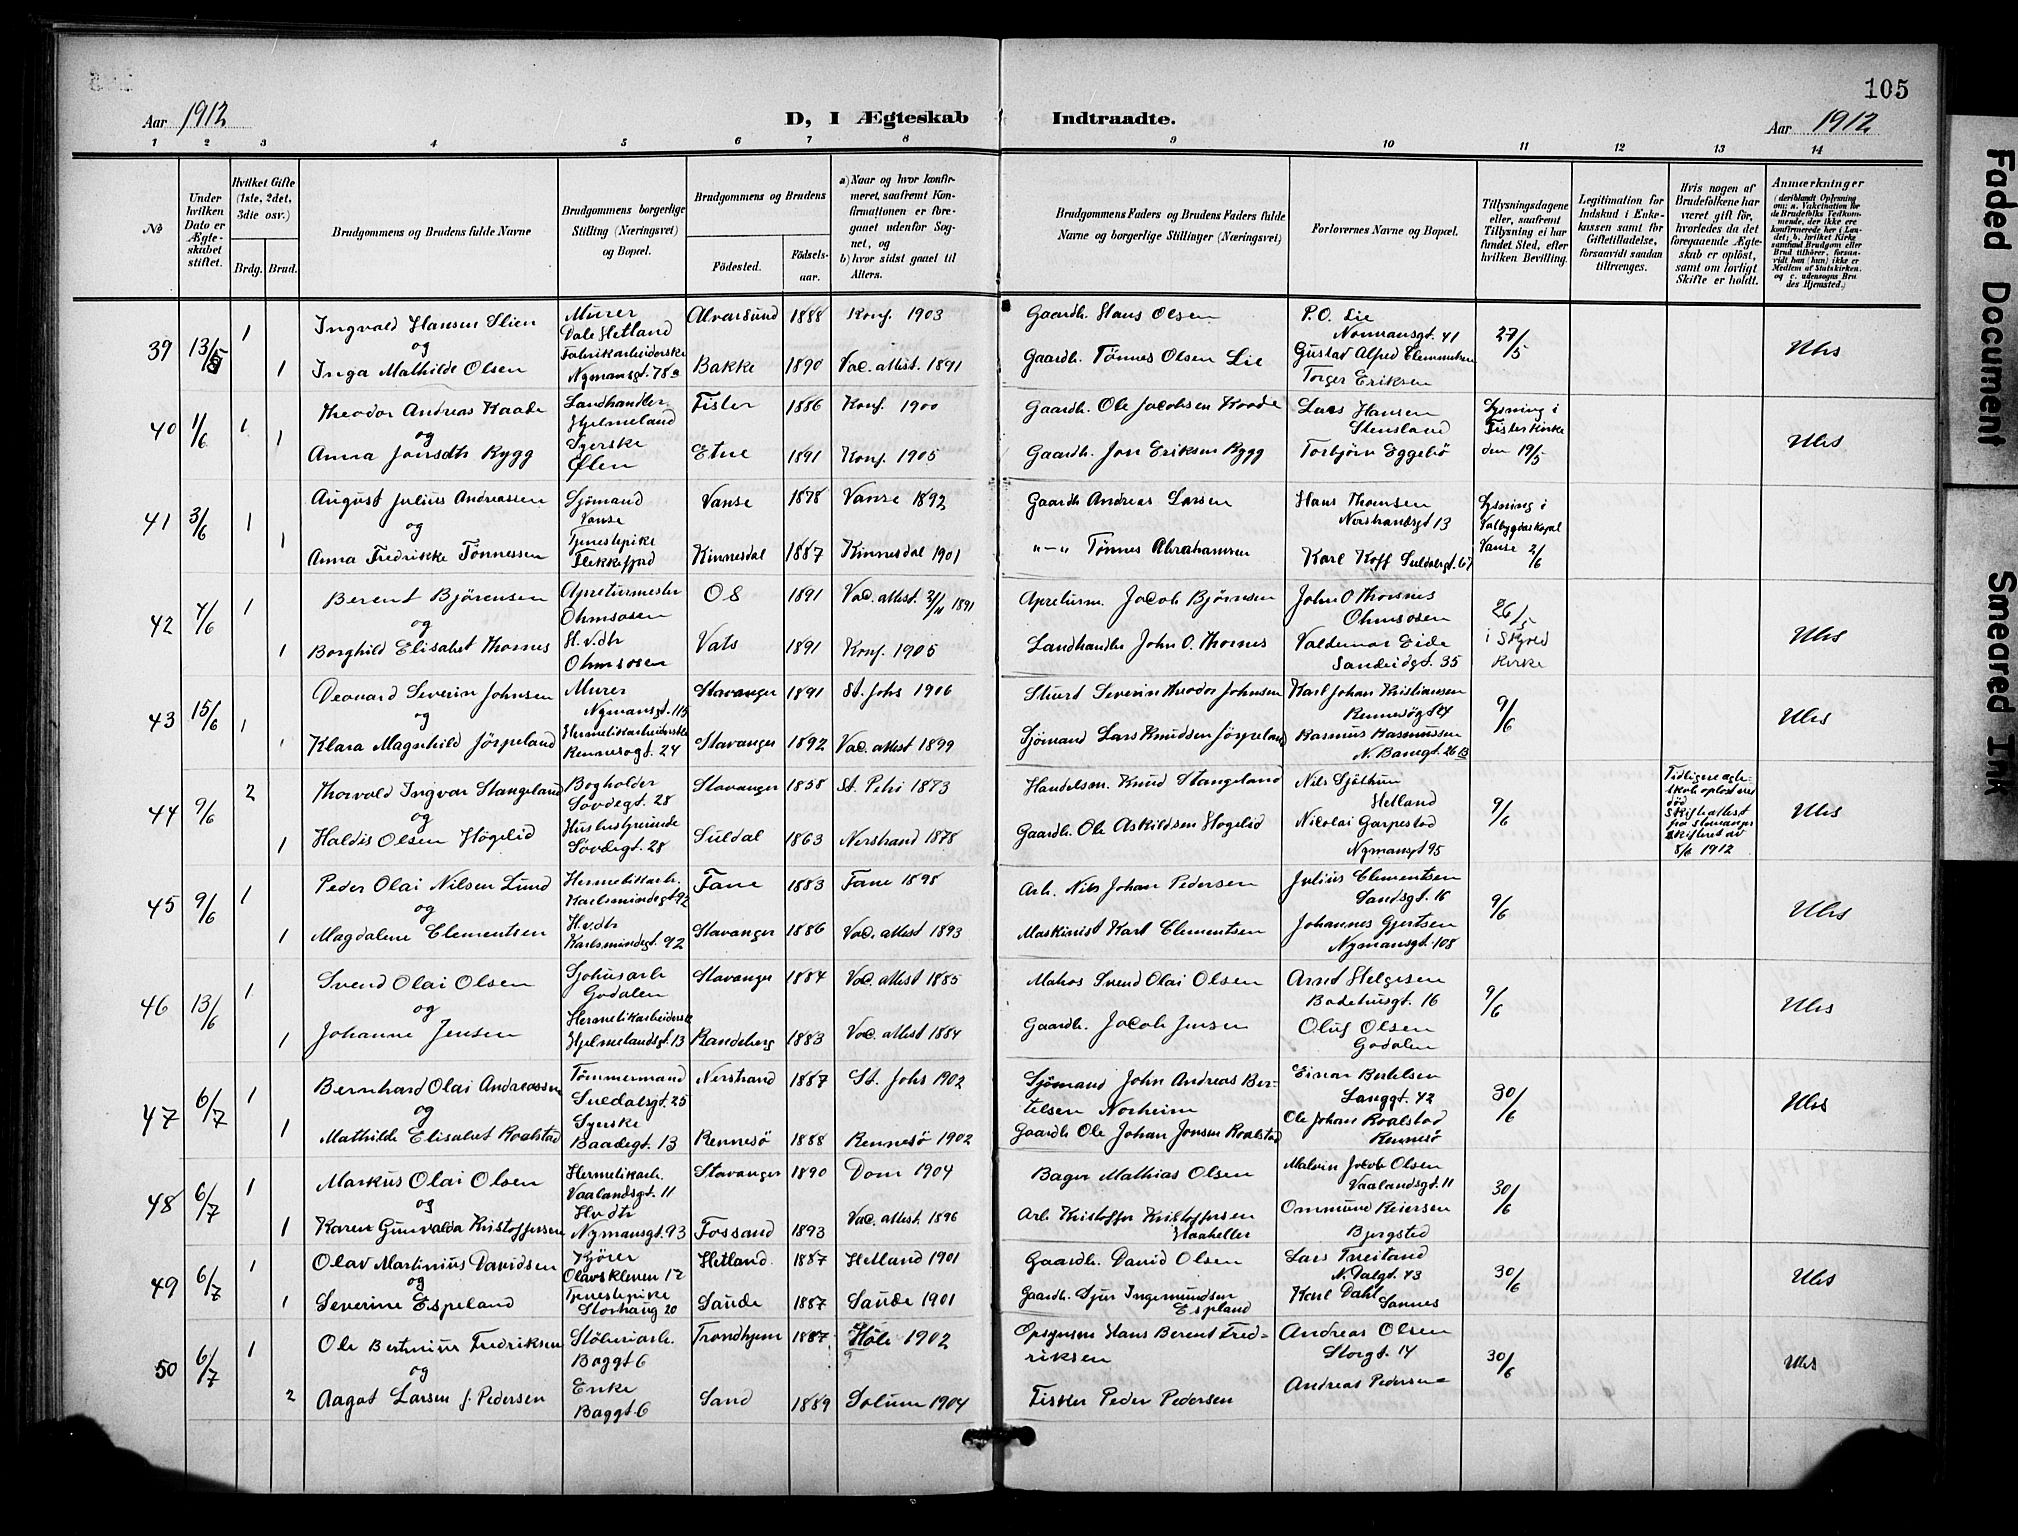 105
Aar 1912
D, I Ægteskab Indtraadte.
Aar 1912
1 2 3 4 5 6 7 8 9 10 11 12 13 14
№
Under hvilken Dato er Ægteskabet stiftet.
Hvilket Gifte (1ste, 2det, 3die osv.)
Brdg. Brud.
Brudgommens og Brudens fulde Navne
Brudgommens borgerlige Stilling (Næringsvei) og Bopæl.
Brudgommens og Brudens
Födested. Födsels-aar.
a) Naar og hvor konfirmeret, saafremt Konfirmationen er foregaaet udenfor Sognet, og
b) hvor sidst gaaet til Alters.
Brudgommens Faders og Brudens Faders fulde Navne og borgerlige Stillinger (Næringsvei)
Forlovernes Navne og Bopæl.
Tillysningsdagene eller, saafremt Tillysning ei har fundet Sted, efter hvilken Bevilling.
Legitimation for Indskud i Enkekassen samt for Giftetilladelse, forsaavidt saadan tiltrænges.
Hvis nogen af Brudefolkene har været gift för, hvorledes da det foregaaende Ægteskab er oplöst, samt om lovligt Skifte er holdt.
Anmærkninger (deriblandt Oplysning om: a. Vakcination for de Brudefolks Vedkommende, der ikke ere konfirmerede her i Landet; b. hvilket Kirkesamfund Brudgom eller Brud tilhörer, forsaavidt han (hun) ikke er Medlem af Statskirken, og c. udensogns Brudes Hjemsted.)
39 13/5 1 Ingvald Hansen Murer Alversund 1888 Konf. 1903 Gaardb. Hans Olsen P.O. Lie 27/5
og Dale Hetland Normansgt. 41
1 Inga Mathilde Olsen Fabrikarbeiderske Nymansgt. 78a Bakke 1890 Vac. attest. 1891 Gaardb. Tønnes Olsen Lie Gustav Alfred Clemmetsen
Torger Eriksen
40 1/6 1 Theodor Andreas Kaade Landhandler Hjelmeland Fister 1886 Konf. 1900 Gaardb. Ole Jacobsen Kaade Lars Hansen Stensland Lysning i Fister kirke den 19/5
og
1 Anna Jonsdtr Rygg Syerske Ølen Etne 1891 Konf. 1905 Gaardb. Jon Eriksen Rygg Torbjørn Eggebø
41 3/6 1 August Julius Andreassen Sjømand Vanse Vanse 1878 Vanse 1892 Gaardb Andreas Larsen Hans Thomsen Nerstrandsgt 13 Lysning i Vanse 2/6
og
1 Anna Fredrikke Tønnessen Tjenestepike Flekkefjord Kinnesdal 1887 Kinnesdal 1901 "—" Tønnes Abrahamsen Karl Koff Suldalsgt. 67
42 7/6 1 Berent Bjørensen Apreturmester Ohmsosen Os 1891 Vac. attest. 2/11 1891 Apreturm. Jacob Bjørnsen John O Thornes Ohmsosen 26/5 i Skjold Kirke
og
1 Borghild Elisabet Thornes H.v.dtr Ohmsosen Vats 1891 Konf. 1905 Landhandler John O. Thornes Valdemar Eide Sandeidgt. 35
43 15/6 1 Severin Johnsen Murer Nymansgt. 115 Stavanger 1891 St. Johs 1906 Stuert Severin Theodor Johnsen Karl Johan Kristiansen 9/6
og
1 Klara Magnhild Jørpeland Hermetikarbeiderske Rennesøgt. 24 Stavanger 1892 Vac. attest 1899 Sjømand Lars Knudsen Jørpeland Rasmus Rasmussen N. Banegt. 26 B
44 9/6 2 Thorvald Ingvar Stangeland Bogholder Sövdegt. 28 Stavanger 1858 St. Petri 1873 Handelsm. Knud Stangeland Nils Sjøthun Hetland 9/6
og
1 Haldis Olsen Høgelid Husbestyrerinde Sövdegt. 28 Suldal 1863 Nerstrand 1878 Gaardb. Ole Askildsen Høgelid Nicolai Garpestad Nymansgt 95
Tidligere ægteskab opløst ved død Skifteattest fra Stavanger Skifteret av 8/6 1912
45 9/6 1 Peder Olai Nilsen Lund Hermetikarb. Karlsmindegt 92 Fane 1883 Fane 1898 Arb. Nils Johan Pedersen Julius Clementsen Sandsgt. 16 9/6
og
1 Magdalene Clementsen H.v.dtr Karlsmindegt. 92 Stavanger 1886 Vac. attest 1893 Maskinist Karl Clementsen Johannes Gjertsen Nymansgt. 108
46 13/6 1 Svend Olai Olsen Sjøhusarb Godalen Stavanger 1884 Vac. attest 1885 Matros Svend Olai Olsen Arnt Helgesen Badehusgt. 16 9/6
og
1 Johanne Jensen Hermetikarbeiderske Hjelmelandsgt. 13 Randeberg 1883 Vac. attest 1884 Gaardb. Jacob Jensen Oluf Olsen Godalen
47 6/7 1 Bernhard Olai Andreassen Tømmermand Suldalsgt. 25 Nerstrand 1887 St. Johs 1902 Sjømand John Andreas Bertelsen Norheim Einar Bertelsen Langgt. 42 30/6
og
1 Mathilde Elisabet Roalstad Syerske Baadegt. 13 Rennesø 1888 Rennesø 1902 Gaardb Ole Johan Jonsen Roalstad Ole Johan Roalstad Rennesø
48 6/7 1 Markus Olai Olsen Hermetikarb. Vaalandsgt. 11 Stavanger 1890 Dom 1904 Bager Mathias Olsen Malvin Jacob Olsen Vaalandsgt. 11 30/6
og
1 Karen Gunvalda Kristoffersen Hvdtr Nymansgt. 93 Fossand 1893 Vac. attest. 1896 Arb Kristoffer Kristoffersen Ommund Reiersen Bjergsted
49 6/7 1 Olav Martinius Davidsen Kjører Olavskleven 12 Hetland. 1887 Hetland 1901 Gaardb. David Olsen Lars N. Dalgt. 43 30/6
og
1 Severine Espeland Tjenestepike Storhaug 20 Saude 1887 Saude 1901 Gaardb. Sjur Ingemundsen Espland Karl Dahl Sannes
50 6/7 1 Ole Bertinius Fredriksen Støberiarb. Baggt 6 Trondhjem 1887 Høle 1902 Opsynsm Hans Berent Fredriksen Andreas Olsen Storgt. 14 30/6
og
2 Aagot Larsen f. Pedersen Enke Baggt. 6 Sand 1889 Solum 1904 Fisker Peder Pedersen Andreas Pedersen
Faded Document
Smeared Ink